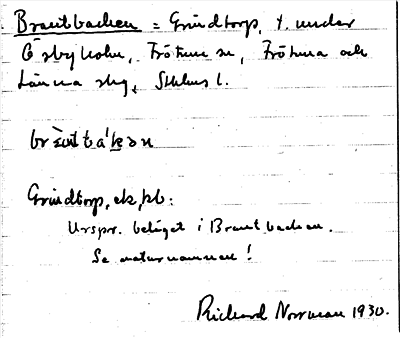 Brantbacken = Grindtorp, t. under
Össbyholm, Frötuna sn, Frötuna och
Länna slg, Sthlms l.
Grindtorp, ek, kb:
Urspr. beläget i Brantbacken.
Se naturnamnen!
Richard Norrman 1930.